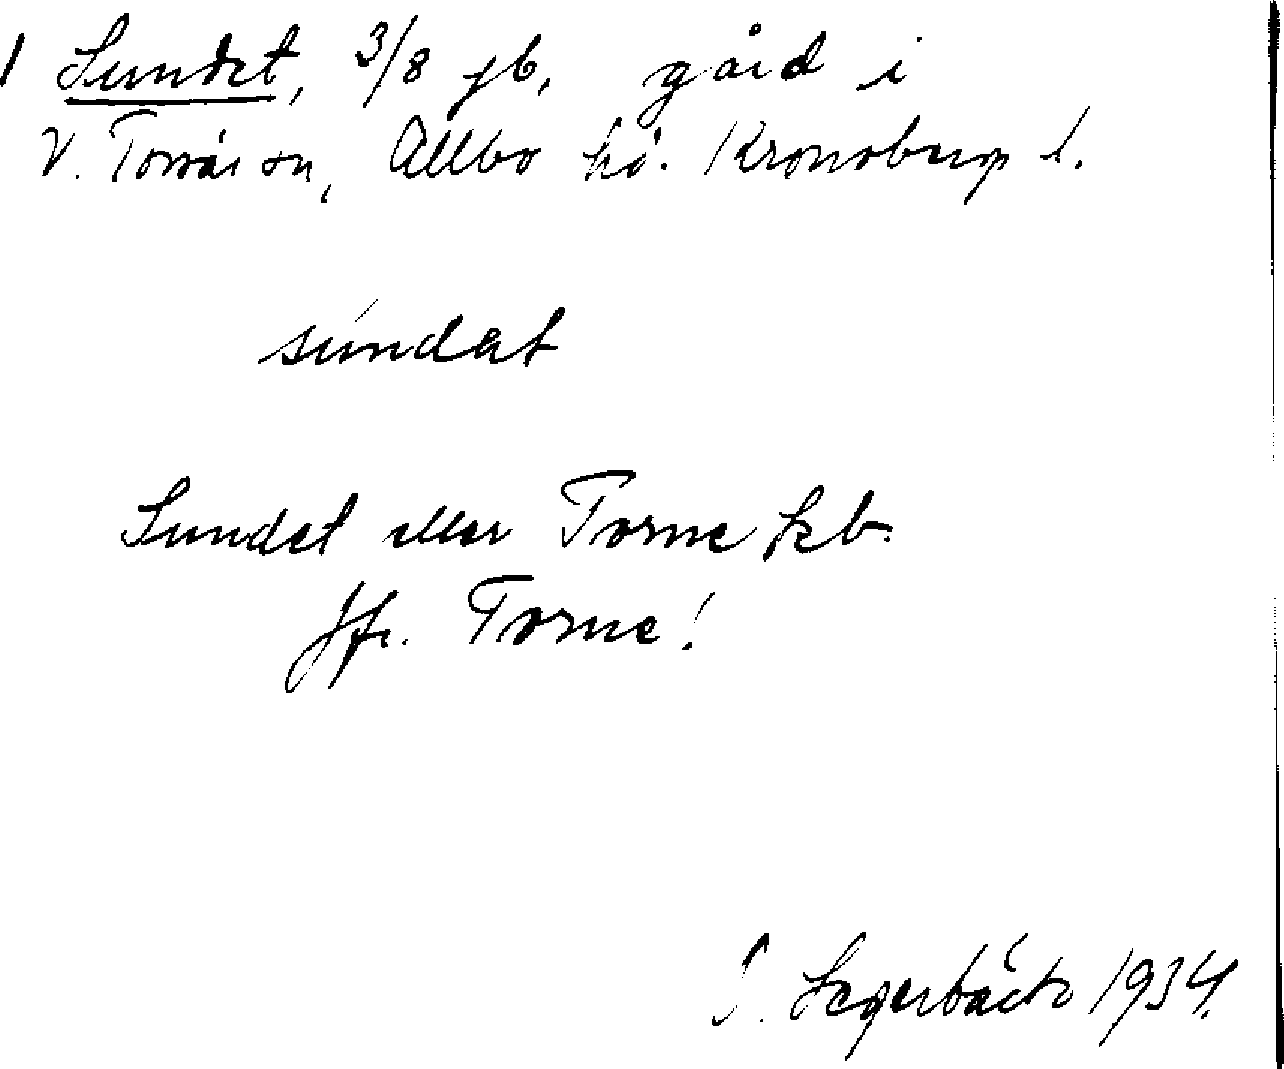 1 Sundet, 3/8 jb, gård i
V. Torsås sn, Allbo hd. Kronobergs l.
súndat
Sundet eller Torne kb.
Jfr. Torne!
Segerbäck 1934.